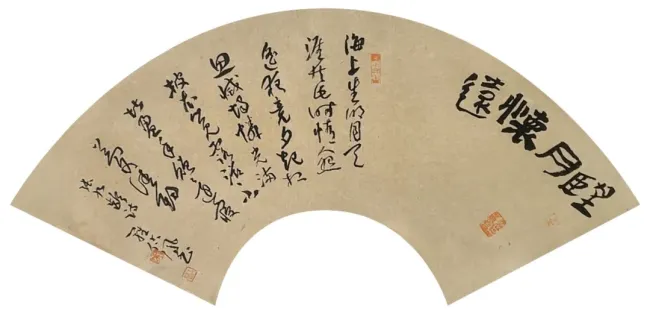 望月懷遠
海上生明月天
涯共此時情人怨
遙夜竟夕起相
思滅燭憐光滿
披衣覺露滋不
堪盈手贈還寢
夢佳期
張九齡詩